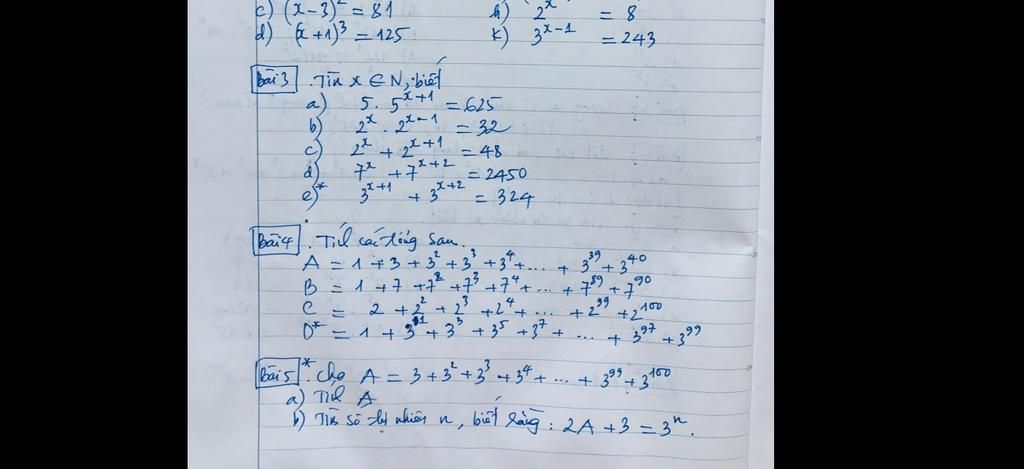 c) (x-3)² = 81
h) 2ˣ = 8
d) (x+1)³ = 125
k) 3ˣ⁻¹ = 243
Bài 3. Tìm x ∈ N, biết
a) 5 . 5ˣ⁺¹ = 625
b) 2ˣ . 2ˣ⁻¹ = 32
c) 2ˣ + 2ˣ⁺¹ = 48
d) 7ˣ + 7ˣ⁺² = 2450
e)* 3ˣ⁺¹ + 3ˣ⁺² = 324
Bài 4. Tính các tổng sau.
A = 1 + 3 + 3² + 3³ + 3⁴ + ... + 3³⁹ + 3⁴⁰
B = 1 + 7 + 7² + 7³ + 7⁴ + ... + 7⁸⁹ + 7⁹⁰
C = 2 + 2² + 2³ + 2⁴ + ... + 2⁹⁹ + 2¹⁰⁰
D* = 1 + 3¹ + 3³ + 3⁵ + 3⁷ + ... + 3⁹⁷ + 3⁹⁹
Bài 5*. Cho A = 3 + 3² + 3³ + 3⁴ + ... + 3⁹⁹ + 3¹⁰⁰
a) Tính A
b) Tìm số tự nhiên n, biết rằng: 2A + 3 = 3ⁿ.